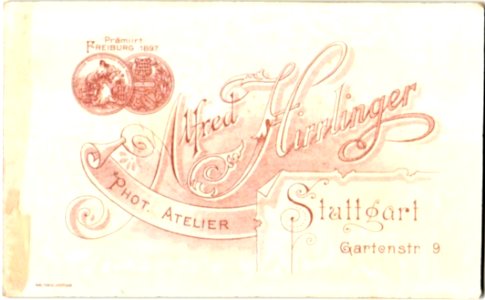 Prämiirt
FREIBURG 1897
Alfred Hirrlinger
PHOT. ATELIER
Stuttgart
Gartenstr 9